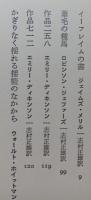 イーフレイムの書
ジェイムズ・メリル
志村正雄訳 9
葦毛の種馬
ロビンソン・ジェファーズ
志村正雄訳 99
作品二五八
エミリー・ディキンソン
志村正雄訳 119
作品七一二
エミリー・ディキンソン
志村正雄訳 120
かぎりなく揺れる揺籃のなかから
ウォールト・ホイットマン
志村正雄訳